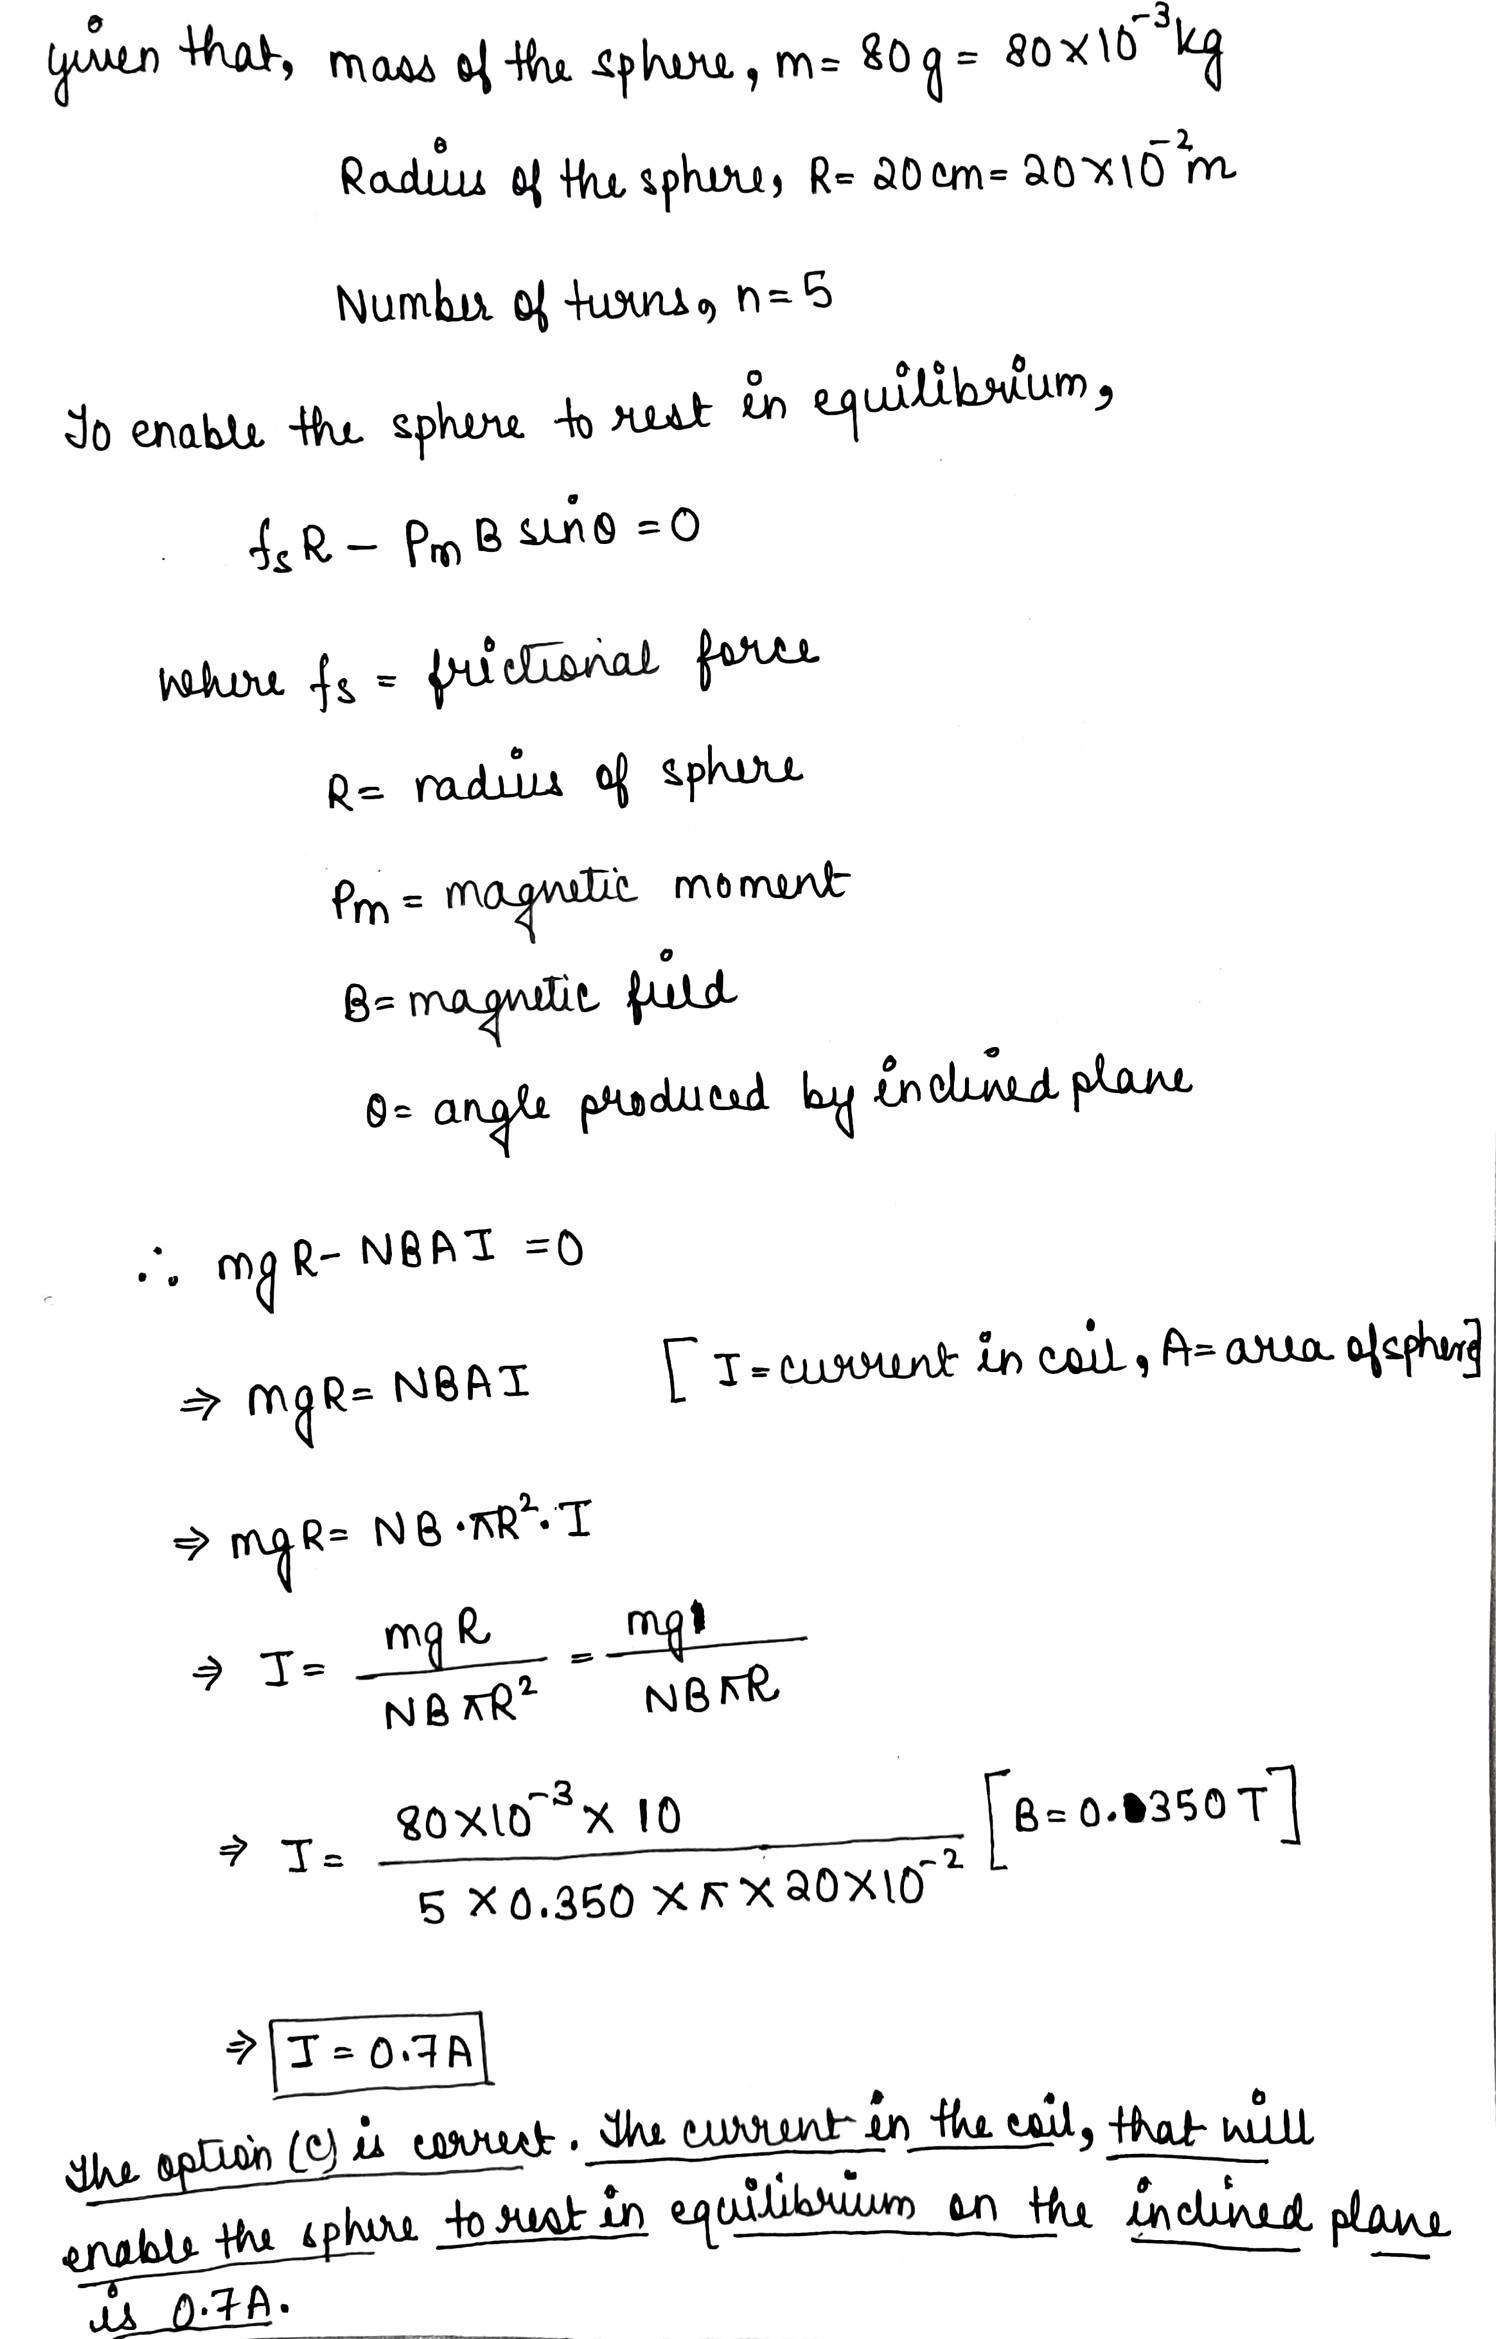 given that, mass of the sphere, m = 80g = 80×10⁻³kg
Radius of the sphere, R = 20cm = 20×10⁻²m
Number of turns, n = 5
To enable the sphere to rest in equilibrium,
fₛR − Pₘ B sinθ = 0
where fₛ = frictional force
R = radius of sphere
Pₘ = magnetic moment
B = magnetic field
θ = angle produced by inclined plane
∴ mgR − NBAI = 0
⇒ mgR = NBAI [I = current in coil, A = area of sphere]
⇒ mgR = NB·πR²·I
⇒ I = mgR / NBπR² = mg / NBπR
⇒ I = 80×10⁻³ × 10 / 5 × 0.350 × π × 20×10⁻² [B = 0.350T]
⇒ I = 0.7A
The option (C) is correct. The current in the coil, that will
enable the sphere to rest in equilibrium on the inclined plane
is 0.7A.